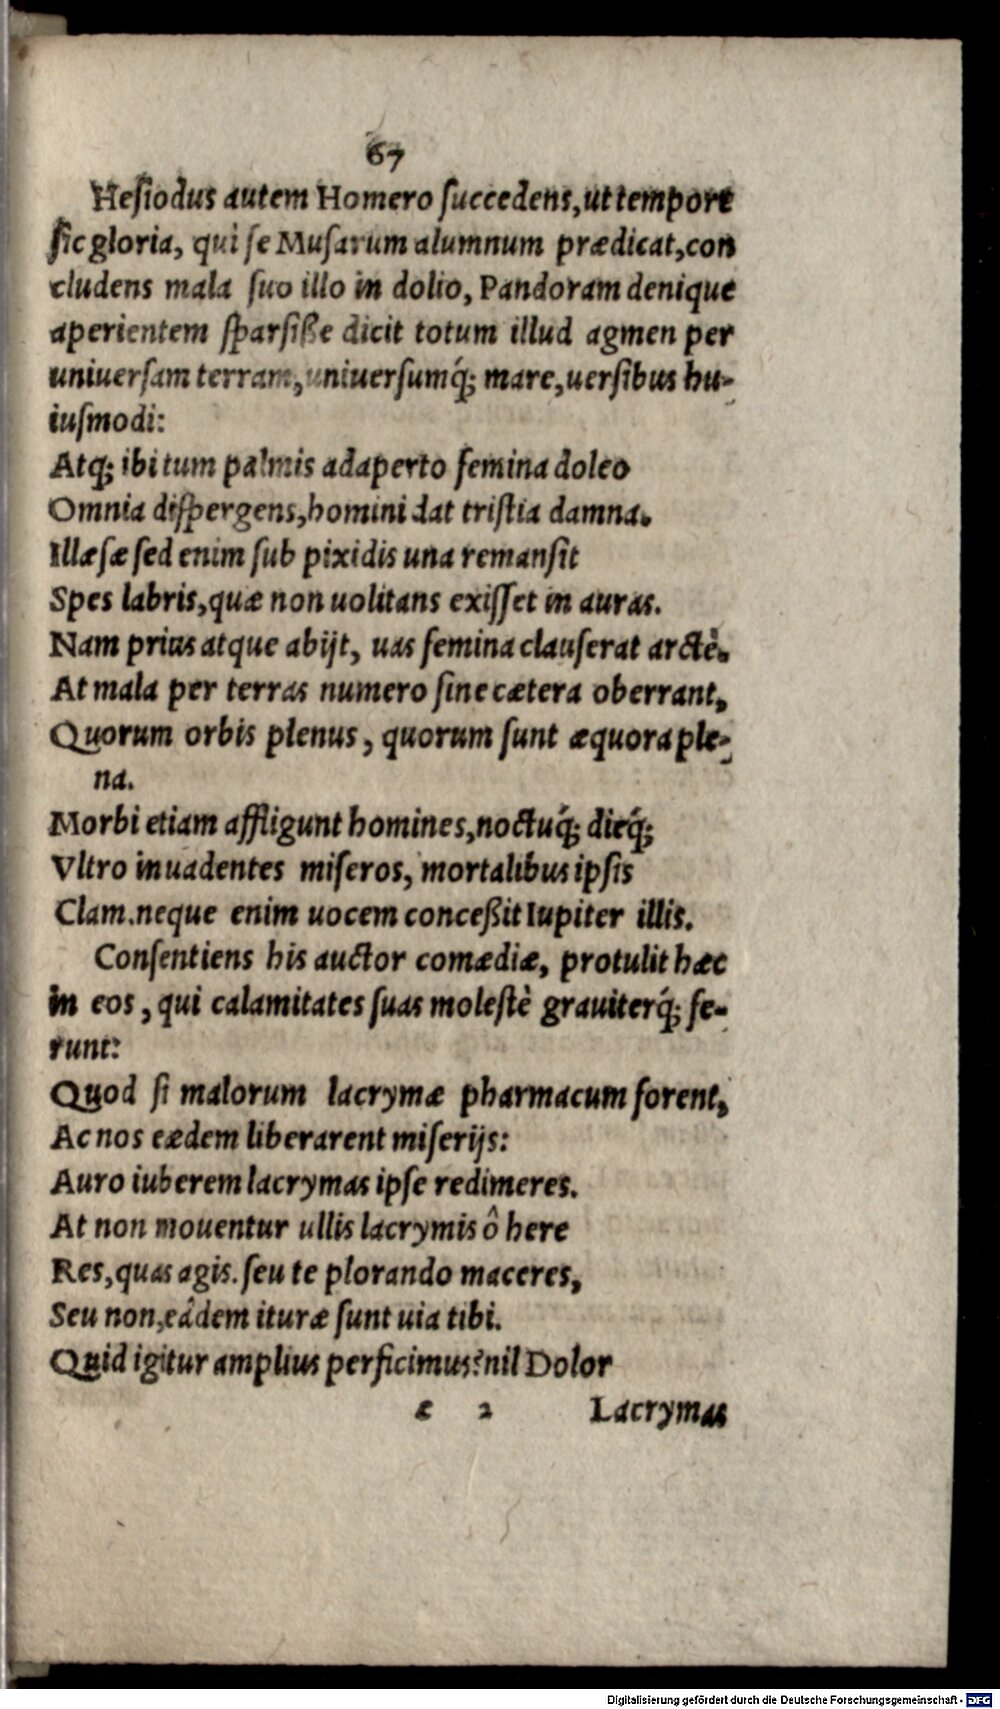 67
Hesiodus autem Homero succedens, ut tempore
ſic gloria, qui ſe Muſarum alumnum prædicat, con
cludens mala ſuo illo in dolio, Pandoram denique
aperientem ſparſiße dicit totum illud agmen per
uniuerſam terram, uniuerſumq́; mare, uerſibus hu-
iuſmodi:
Atq; ibi tum palmis adaperto femina doleo
Omnia diſpergens, homini dat triſtia damna.
Illæſæ ſed enim ſub pixidis una remanſit
Spes labris, quæ non uolitans exiſſet in auras.
Nam prius atque abijt, uas femina clauſerat arctè.
At mala per terras numero ſine cætera oberrant,
Quorum orbis plenus, quorum ſunt æquora ple-
na.
Morbi etiam affligunt homines, noctuq́; dieq́;
Vltro inuadentes miſeros, mortalibus ipſis
Clam. neque enim uocem conceßit Iupiter illis.
Conſentiens his auctor comædiæ, protulit hæc
in eos, qui calamitates ſuas moleſtè grauiterq́; fe-
runt:
Quod ſi malorum lacrymæ pharmacum forent,
Ac nos eædem liberarent miſerijs:
Auro iuberem lacrymas ipſe redimeres.
At non mouentur ullis lacrymis ô here
Res, quas agis. ſeu te plorando maceres,
Seu non, eâdem ituræ ſunt uia tibi.
Quid igitur amplius perficimus? nil Dolor
e 2 Lacrymas
Digitalisierung gefördert durch die Deutsche Forschungsgemeinschaft - DFG